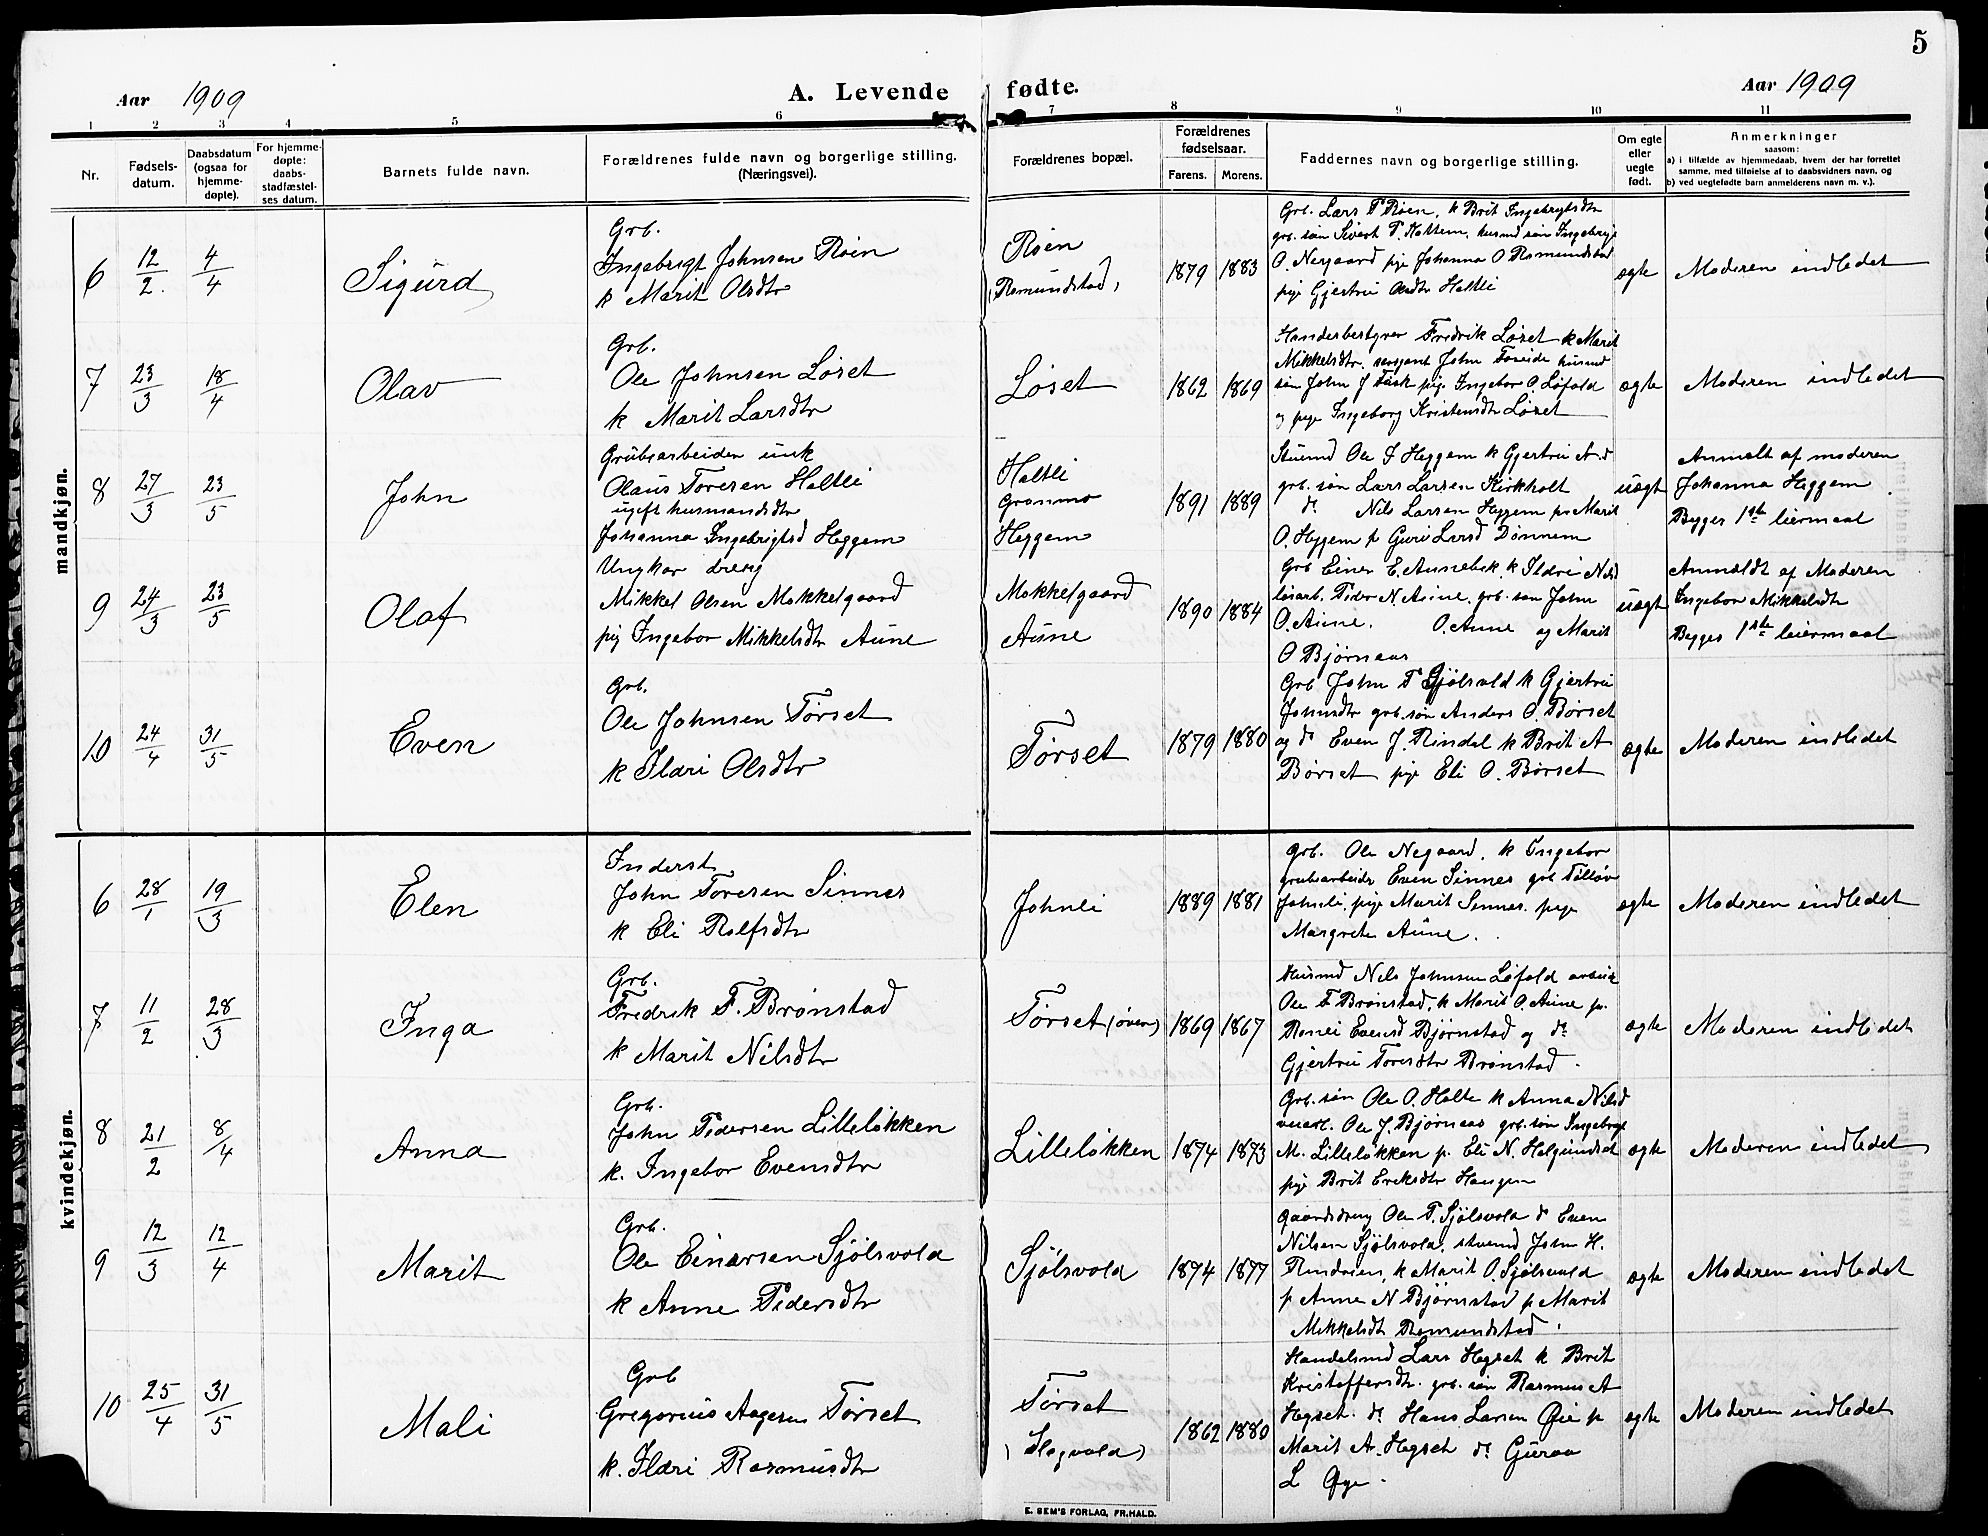 5
Aar 1909
A. Levende fødte.
Aar 1909
1 2 3 4 5 6 7 8 9 10 11
Nr.
Fødsels-
datum.
Daabsdatum
(ogsaa for
hjemme-
døpte).
For hjemme-
døpte:
daabs-
stadfæstel-
ses datum.
Barnets fulde navn.
Forældrenes fulde navn og borgerlige stilling.
(Næringsvei).
Forældrenes bopæl.
Forældrenes
fødselsaar.
Farens. Morens.
Faddernes navn og borgerlige stilling.
Om egte
eller
uegte
født.
Anmerkninger
saasom:
a) i tilfælde av hjemmedaab, hvem der har forrettet
samme, med tilføielse af to daabsvidners navn, og
b) ved uegtefødte barn anmelderens navn m. v.).
mandkjøn.
6 12/2. 4/4 Sigurd
Grb.
Ingebrigt Johnsen Røen
k Marit Olsdtr
Røen
(Romundstad)
1879 1883
Grb. Lars T Røen, k Brit Ingebrigtsdtr
grb. søn Sivert T. Holtem, husmd søn Ingebrigt
O. Nergaard pige Johanna O Romundstad
pige Gjertru Olsdtr Holtli
egte Moderen indledet
7 23/3 18/4 Olav
Grb.
Ole Johnsen Løset
k Marit Larsdtr
Løset
1862 1869
Handerbestyrer Fredrik Løset k Marit
Mikkelsdtr. sergeant John Foseide husmd
søn John J Fask pige Ingebor O. Løfald
og pige Ingeborg Kristensdtr Løset
egte Moderen indledet
8 27/3 23/5 John
Grubearbeider unk
Olaus Toresen Holtli
ugift husmandsdtr
Johanna Ingebrigtsd Heggem
Holtli
Granmo
Heggem
1891 1889
Stuemd Ole I Heggem k Gjertru A. d
grb. søn Lars Larsen Kirkholt
do Nils Larsen Heggem pi Marit
O. Heggem p Guri Larsd Dønnem
uegt
Anmelt af moderen
Johanna Heggem
Begges 1ste leiermaal
9 24/3 23/5 Olaf
Ungkar dreng
Mikkel Olsen Mokkelgaard
pig Ingebor Mikkelsdtr Aune
Mokkelgaard
Aune
1890 1884
Grb Einer E. Aunebak, k Ildri Nilsd
løsarb. Peder N. Aune, grb. søn John
O. Aune. O. Aune og Marit
O Bjørnaas
uegt
Anmeldt af Moderen
Ingebor Mikkelsdtr
Begges 1ste leiermaal
10 24/4 31/5 Even
Grb.
Ole Johnsen Tørset
k Ildri Olsdtr
Tørset
1879 1880
Grb John T Sjølsvold k Gjertru
Johnsdtr grb. søn Anders O. Børset
og do Even J. Rindal k Brit A
Børset pige Eli O. Børset
egte Moderen indledet
kvindekjøn.
6 28/1 19/3 Elen
Inderst
John Toresen Sinnes
k Eli Rolfsdtr
Johnli
1889 1881
grb. Ole Negaard, k Ingebor
grubearbeidr Even Sinnes grb Tølløv
Johnli, pige Marit Sinnes. pige
Margrete Aune.
egte Moderen indledet
7 11/2 28/3 Inga
Grb.
Fredrik F. Brønstad
k Marit Nilsdtr
Tørset (øver)
1869 1867
Husmd Nils Johnsen Løfald arbeid
Ole F Brønstad, k Marit O. Aune p.
Evensd Bjørnstad og do
Gjertru Toresdtr Brønstad.
egte Moderen indledet
8 21/2 8/4 Anna
Grb.
John Pedersen Lilleløkken
k. Ingebor Evensdtr
Lilleløkken
1874 1873
Grb. søn Ole O. Holte k Anna Nilsd
veiarb. Ole J. Bjørnaas grb. søn Ingebrigt
M. Lilleløkken p. Eli N. Helgundset
pige Brit Eriksdtr Haugen
egte Moderen indledet
9 12/3 12/4 Marit
Grb.
Ole Einarsen Sjølsvold
k Anne Pedersdtr
Sjølsvold
1874 1877
Gaardsdreng Ole T. Sjølsvold do Even
Nilsen Sjølsvold, stuemd John H.
k Marit O. Sjølsvold
p Anne N Bjørnstad p Marit
Mikkelsdtr Romundstad.
egte Moderen indledet
10 25/4 31/5 Mali
Grb
Gregorius Aagesen Tørset
k. Ildri Rasmusdtr
Tørset
(Slegvold)
1862 1880
Handelsmd Lars Hegset k Brit
Kristoffersdtr. grb. søn Rasmus A
Hegset. do Hans Larsen Øie p
Marit A. Hegset do Guroo
L Øye.
egte Moderen indledet
E. SEM'S FORLAG, FR.HALD.